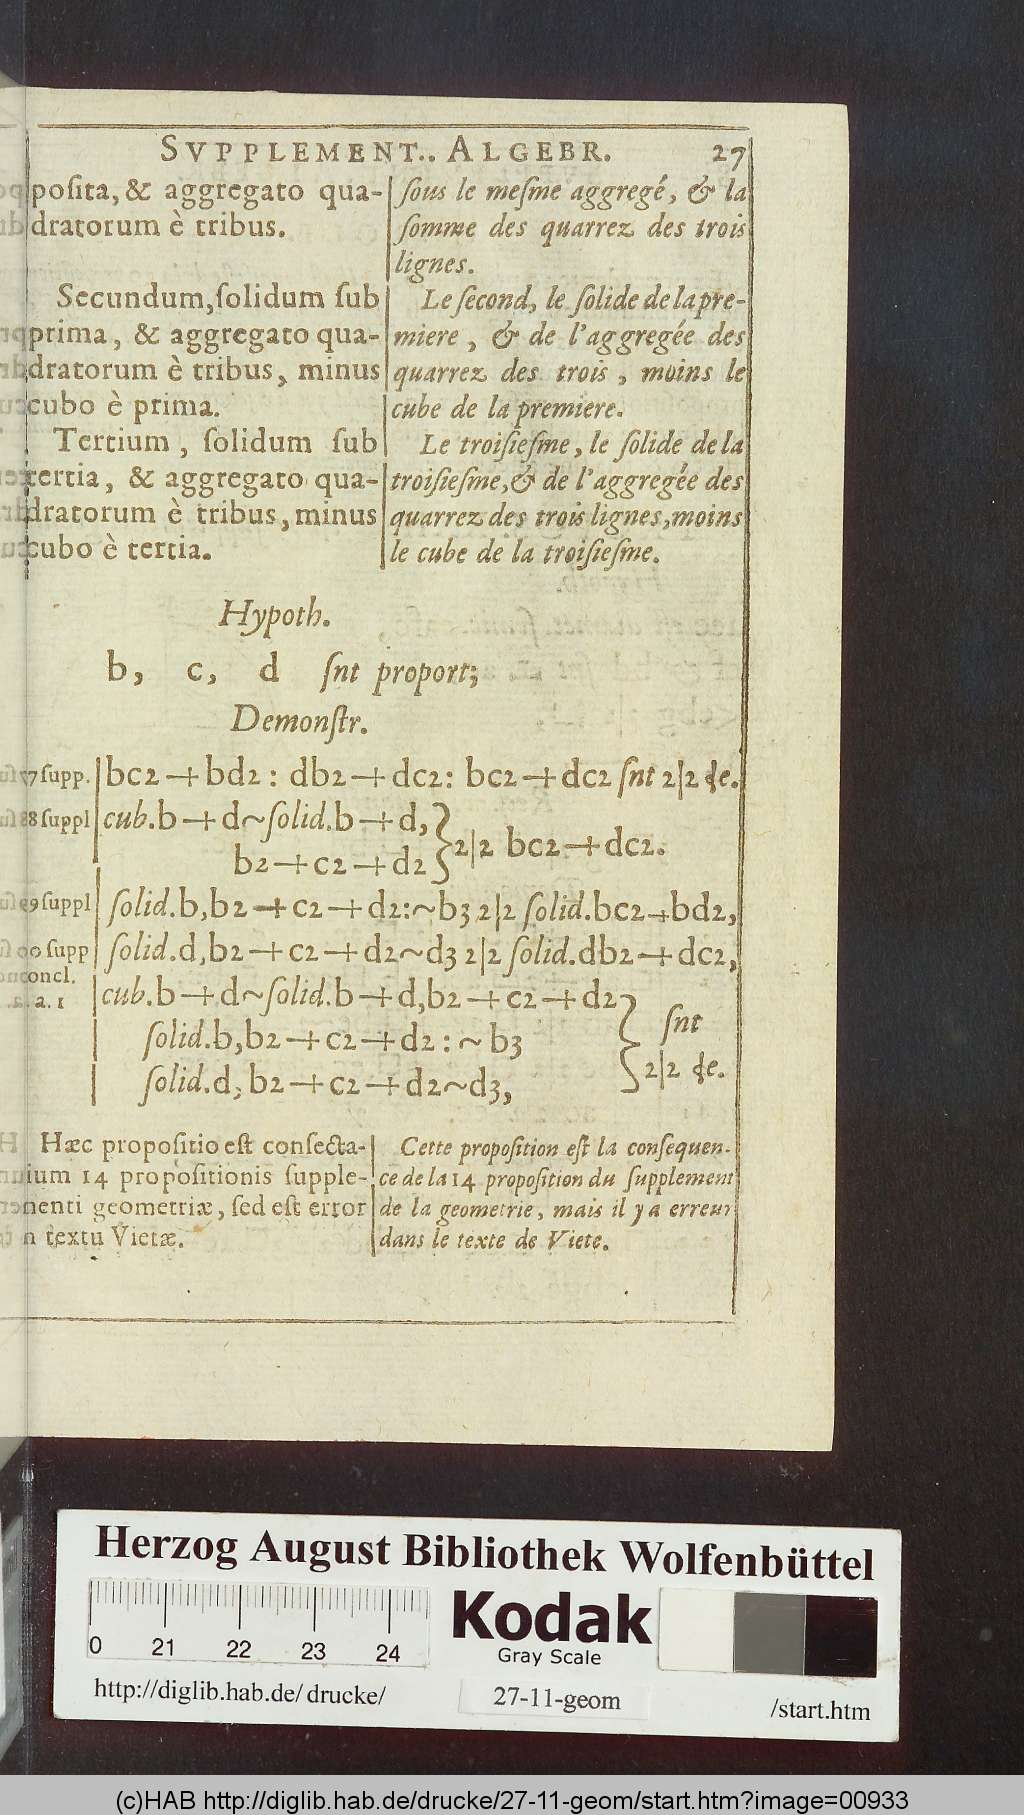 SVPPLEMENT.. ALGEBR. 27
posita, & aggregato qua-
dratorum è tribus.
Secundum, ſolidum ſub
prima, & aggregato qua-
dratorum è tribus, minus
cubo è prima.
Tertium, ſolidum ſub
tertia, & aggregato qua-
dratorum è tribus, minus
cubo è tertia.
ſous le meſme aggregé, & la
ſomme des quarrez des trois
lignes.
Le ſecond, le ſolide de la pre-
miere, & de l'aggregée des
quarrez des trois, moins le
cube de la premiere.
Le troiſieſme, le ſolide de la
troiſieſme, & de l'aggregée des
quarrez des trois lignes, moins
le cube de la troiſieſme.
Hypoth.
b, c, d ſnt proport;
Demonſtr.
7 ſupp. bc2 + bd2 : db2 + dc2 : bc2 + dc2 ſnt 2|2 &e.
8 ſuppl cub. b + d ~ ſolid. b + d,
b2 + c2 + d2 } 2|2 bc2 + dc2.
9 ſuppl ſolid. b, b2 + c2 + d2 : ~ b3 2|2 ſolid. bc2 + bd2,
ſupp ſolid. d, b2 + c2 + d2 ~ d3 2|2 ſolid. db2 + dc2,
concl.
a. a. 1 cub. b + d ~ ſolid. b + d, b2 + c2 + d2
ſolid. b, b2 + c2 + d2 : ~ b3 } ſnt
ſolid. d, b2 + c2 + d2 ~ d3, 2|2 &e.
Hæc propoſitio eſt conſecta-
rium 14 propoſitionis ſupple-
menti geometriæ, ſed eſt error
n textu Vietæ.
Cette propoſition eſt la conſequen-
ce de la 14 propoſition du ſupplement
de la geometrie, mais il y a erreur
dans le texte de Viete.
Herzog August Bibliothek Wolfenbüttel
0 21 22 23 24
Kodak
Gray Scale
http://diglib.hab.de/drucke/ 27-11-geom /start.htm
(c)HAB http://diglib.hab.de/drucke/27-11-geom/start.htm?image=00933